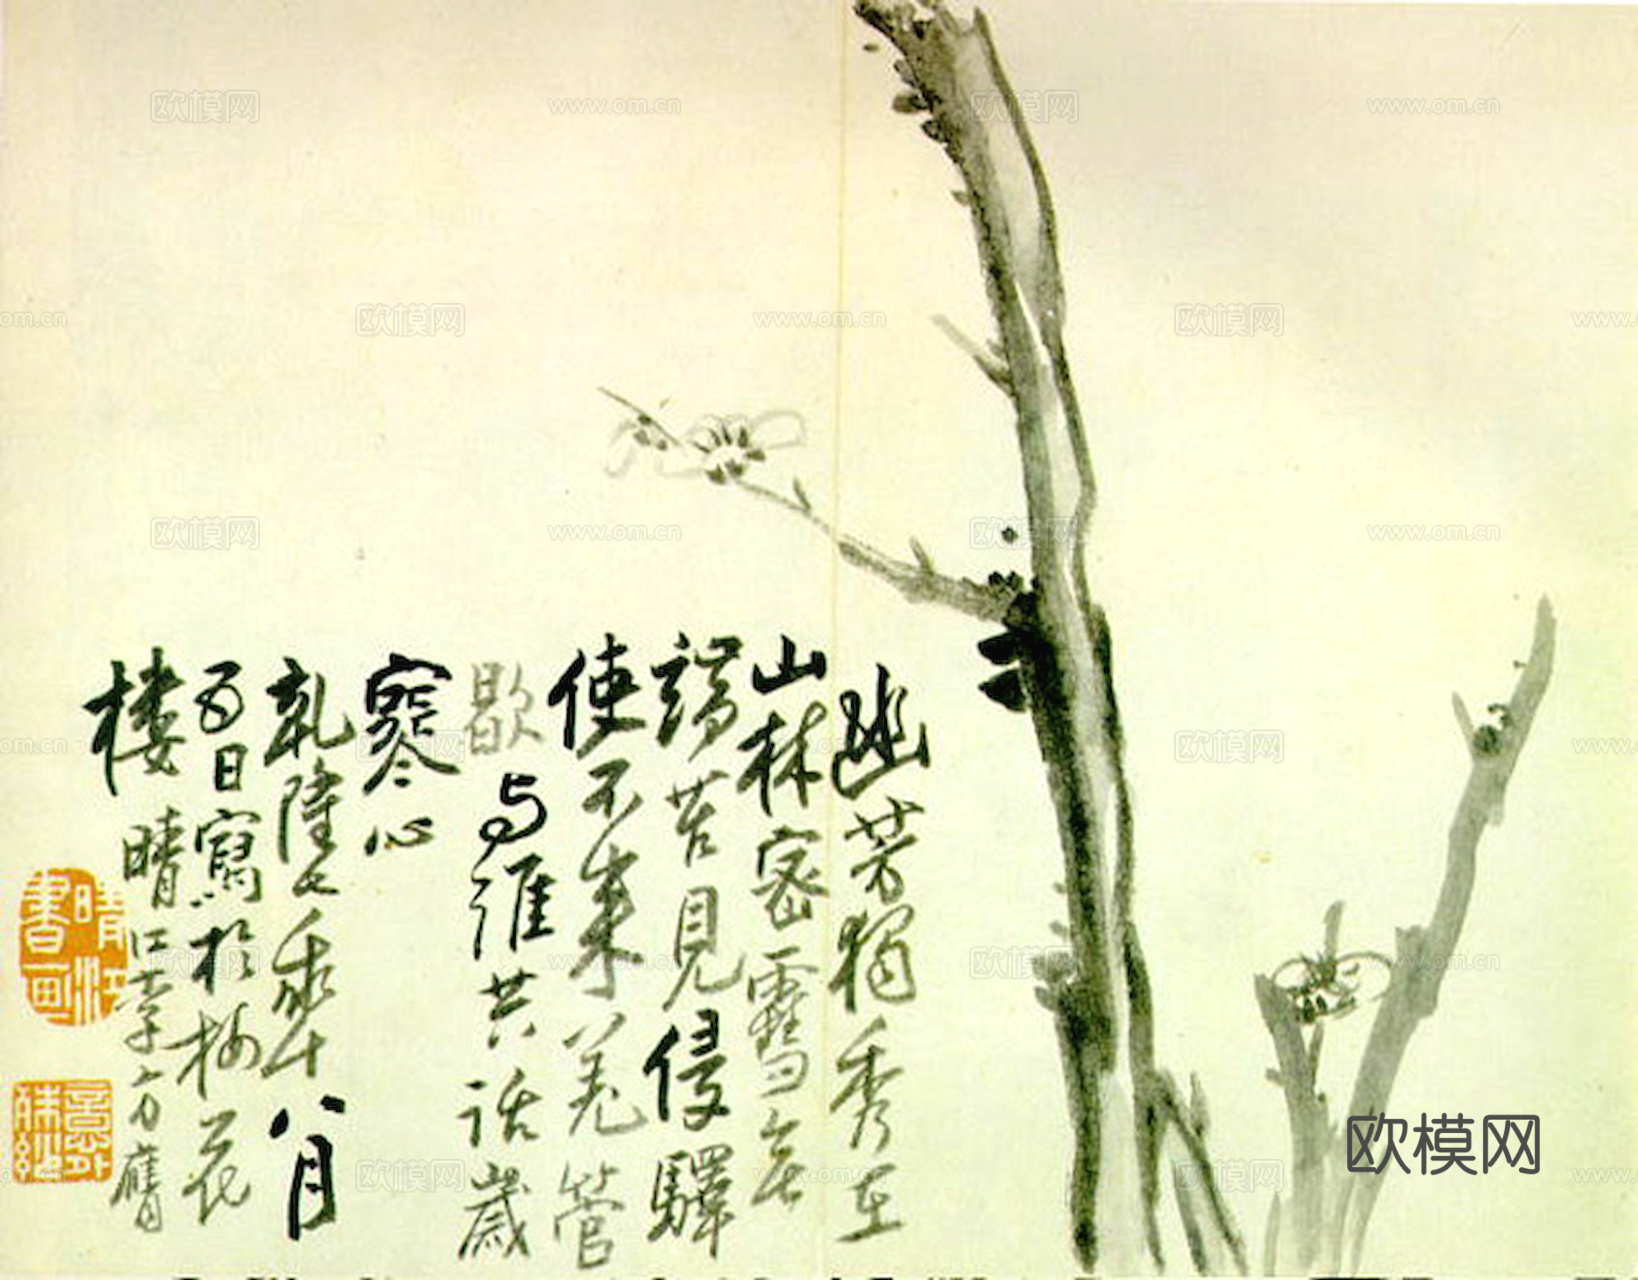 幽芳獨秀在
山林密雪無
端苦見侵驛
使不來羌管
歇与誰共話歲
寒心
乾隆乙亥年八月
五日寫於梅花
樓晴江李方膺
晴江書画
欧模网
www.om.cn